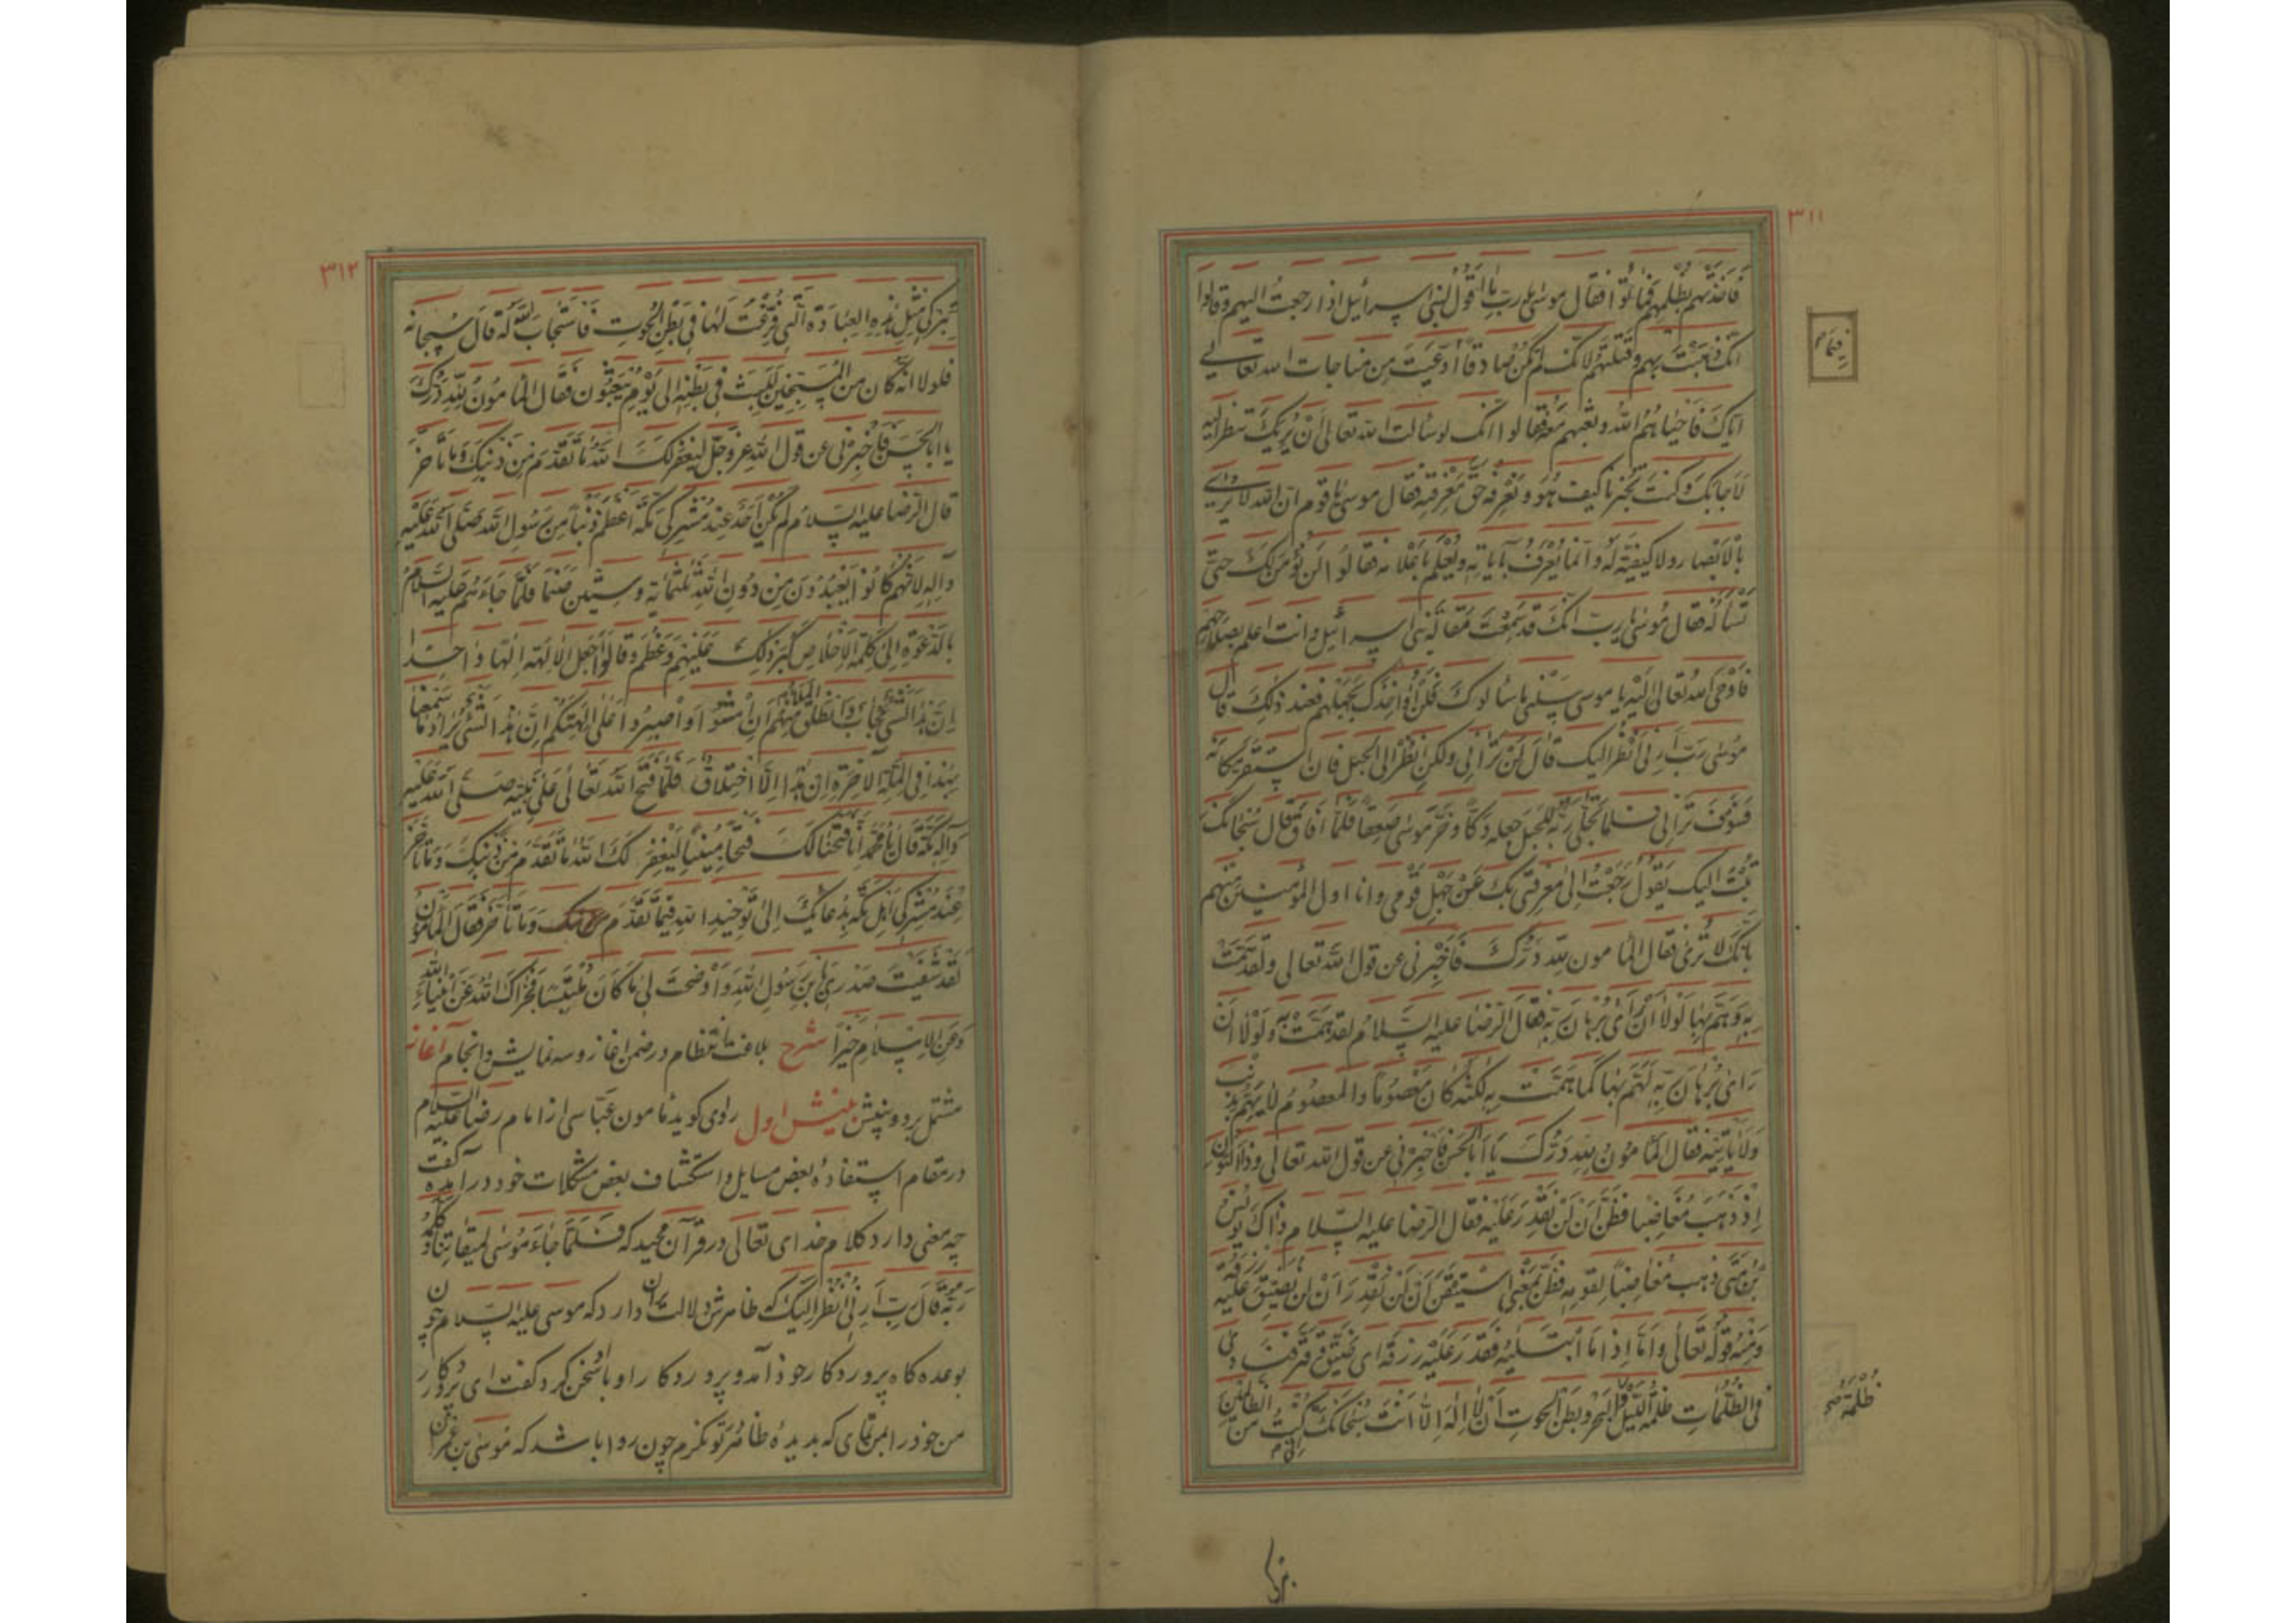 ٣١١
فَاَخَذَتْهُم بِظُلمِهِم فَماتُوا فقال موسىٰ يا ربّ ما اَقُولُ لبنى اسرائيل اذا رجعتُ اليهم و قالوا
انّك ذَهَبْتَ بِهِم وقَتَلتَهُم لانّك لم تكُن صادقاً فيما ادّعَيتَ مِن مناجات الله تعالى
ايّاكَ فَاَحياهُمُ اللهُ وبَعَثَهُم مَعَهُ فقالوا انّك لو سَالتَ الله تعالىٰ اَنْ يُرِيَكَ تنظر اليه
لَاَجابَكَ وكنتَ تُخبِرنا كيف هُوَ ونَعْرِفُه حَقّ مَعْرِفَتِه فقال موسىٰ يا قوم انّ الله لا يُرىٰ
بالاَبْصار ولا كيفيّةَ لَهُ وانّما يُعْرَفُ بآياتِه ويُعْلَمُ باَعْلامِه فقالُوا لَن نُؤمِنَ لَكَ حتّى
تَسْأَلَهُ فقال مُوسىٰ يا ربّ انّكَ قد سَمِعْتَ مَقالَةَ بنى اسرائيل وانت اعلم بصَلاحِهِم
فَاَوْحَى اللهُ تعالىٰ اِلَيْهِ يا موسى سَلْنى ما سَألوكَ فلَن اُؤاخِذَكَ بجَهْلِهِم فعند ذٰلِكَ قال
مُوسىٰ رَبّ اَرِنى اَنْظُر اليك قالَ لَنْ تَرانى ولكن انظُرْ الى الجبل فان استَقَرّ مَكانَه
فَسَوْفَ تَرانى فلمّا تَجَلّىٰ رَبُّه للجَبَل جعله دَكّاً وخَرّ موسىٰ صَعِقاً فلَمّا اَفاقَ قال سُبْحانَكَ
تُبْتُ اليك يَقُولُ رَجَعْتُ الىٰ مَعْرِفَتى بكَ عَنْ جَهْلِ قَوْمى وانا اول المُؤمنين منهم
بِانّكَ لا تُرىٰ فقال المأمون للهِ دَرُّكَ فَاَخْبِرْنى عن قول الله تعالى ولقد هَمّتْ
بِه وَهَمّ بِها لَوْلا اَنْ رَاىٰ بُرْهانَ رَبِّه فقال الرّضا عليه السّلامُ لقد هَمّتْ به ولَوْلا اَنْ
رَاىٰ بُرْهانَ رَبِّه لَهَمّ بِها كَما هَمّت بِه لكنّه كان مَعْصُوماً والمعصومُ لا يَهُمُّ بذنب
ولا يَأتيه فقال المأمُونُ للهِ دَرُّكَ يا اَبا الحَسَن فَاَخبِرْنى عن قول الله تعالى وذا النّون
اِذ ذهَبَ مُغاضِبا فظَنّ اَن لَنْ نَقْدِرَ عَلَيْه فقال الرّضا عليه السّلام ذاكَ يُونُسُ
بْنُ مَتّى ذهب مُغاضِباً لقومِه فظَنّ بمَعْنى اسْتَيْقَنَ اَنْ لَنْ نَقْدِرَ اَنْ لَن نُضَيِّقَ عليه رزقه
ومِنْهُ قولُه تَعالىٰ واَمّا اِذا مَا ابْتَلٰيهُ فقَدَرَ عَلَيْهِ رزْقَهُ اى ضَيّقَ وقَتّر فنادىٰ
فى الظُّلُماتِ ظُلْمَةُ اللّيل و البَحْر وبَطْن الحُوتِ اَنْ لا اِلٰهَ اِلّا اَنْتَ سُبْحانَكَ اِنّى كُنْتُ مِنَ الظّالمينَ
ظُلْمَة صح
بتركى
٣١٢
بِتَركى مِثْلِ هذِه العِبادَةِ الّتى فَرّغْتَنى لَها فى بَطْنِ الحُوتِ فَاسْتَجابَ اللهُ لَهُ قالَ سُبحانه
فلولا انّه كان مِنَ المُسَبِّحينَ لَلَبِثَ فى بَطْنِه الىٰ يَوْمِ يُبْعَثُون فَقال المأمُونُ لِلهِ دَرُّكَ
يا اَبا الحَسَن فَاَخْبِرْنى عن قول الله عزّ وجَلّ لِيَغْفِرَ لَكَ اللهُ ما تَقَدّمَ مِن ذنبكَ وما تَاَخّر
قال الرّضا عليه السّلامُ لم يكُنْ اَحَدٌ عِنْدَ مُشرِكى مَكّةَ اَعظَمَ ذنْباً مِن رَسُولِ الله صَلّى اللهُ عَلَيْهِ
وآلِهِ لِاَنّهُم كانُوا يَعْبُدُونَ مِن دُونِ اللهِ ثلثمائة وستّين صَنَماً فلَمّا جاءَهُم عليه السّلامُ
بالدّعْوَةِ اِلىٰ كَلِمَةِ الاِخْلاصِ كَبُرَ ذٰلِكَ عَلَيْهِم وعَظُمَ وقالُوا اَجَعَلَ الآلِهَةَ اِلٰهاً واحِداً
اِنّ هٰذا لَشَىْءٌ عُجابٌ وانْطَلَقَ المَلَاُ مِنْهُم اَنِ امْشُوا واصْبِرُوا عَلىٰ آلِهَتِكُم اِنّ هٰذا لَشَىْءٌ يُرادُ ما سَمِعْنا
بِهٰذا فى المِلّةِ الآخِرَة اِن هٰذا اِلّا اخْتِلاقٌ فَلَمّا فَتَحَ اللهُ تَعالىٰ عَلىٰ نَبِيّه صَلّى اللهُ عَلَيْهِ
وآلِه مَكّةَ قال يا مُحمّدُ اِنّا فَتَحْنا لَكَ فَتْحاً مُبيناً لِيَغْفِرَ لَكَ اللهُ ما تَقَدّمَ مِن ذنْبِكَ وَما تاَخّر
عِنْدَ مُشرِكى اَهْلِ مَكّة بِدُعائِكَ اِلىٰ تَوْحيدِ اللهِ فيما تَقَدّمَ وَما تَاَخّر فقالَ المأمونُ
لقد شَفَيْتَ صَدْرى يَا بْنَ رَسُولِ اللهِ وَاَوْضَحْتَ لى ما كان مُلتَبِساً فجَزاكَ اللهُ عَنْ اَنبيائِه
وَعَنِ الاِسلامِ خَيْراً شرح بلاغت انتظام در ضمن اغاز و سه نمايش و انجام آغاز
مشتمل بر دو بينش بينش اول راوى گويد مأمون عبّاسى از امام رضا عليه السّلام
در مقام استفادهٔ بعض مسايل و استكشاف بعض مشكلات خود در آمده گفت
چه معنى دارد كلام خداى تعالى در قرآن مجيد كه فلمّا جاءَ مُوسىٰ لميقاتنا وكلّمهُ
رَبّهُ قالَ رَبّ اَرِنى اَنْظُر اِلَيْكَ كه ظاهرش دلالت بر آن دارد كه موسى عليه السلام چون
بوعده گاه پروردگار خود آمد و پروردگار او با او سخن كرد گفت اى پروردگار
من خود را بمن نماى كه بديدهٔ ظاهر تو نگرم چون روا باشد كه موسىٰ بن عمران